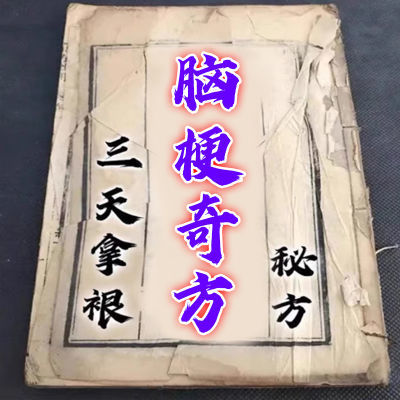 秘方
脑梗奇方
三天拿裉